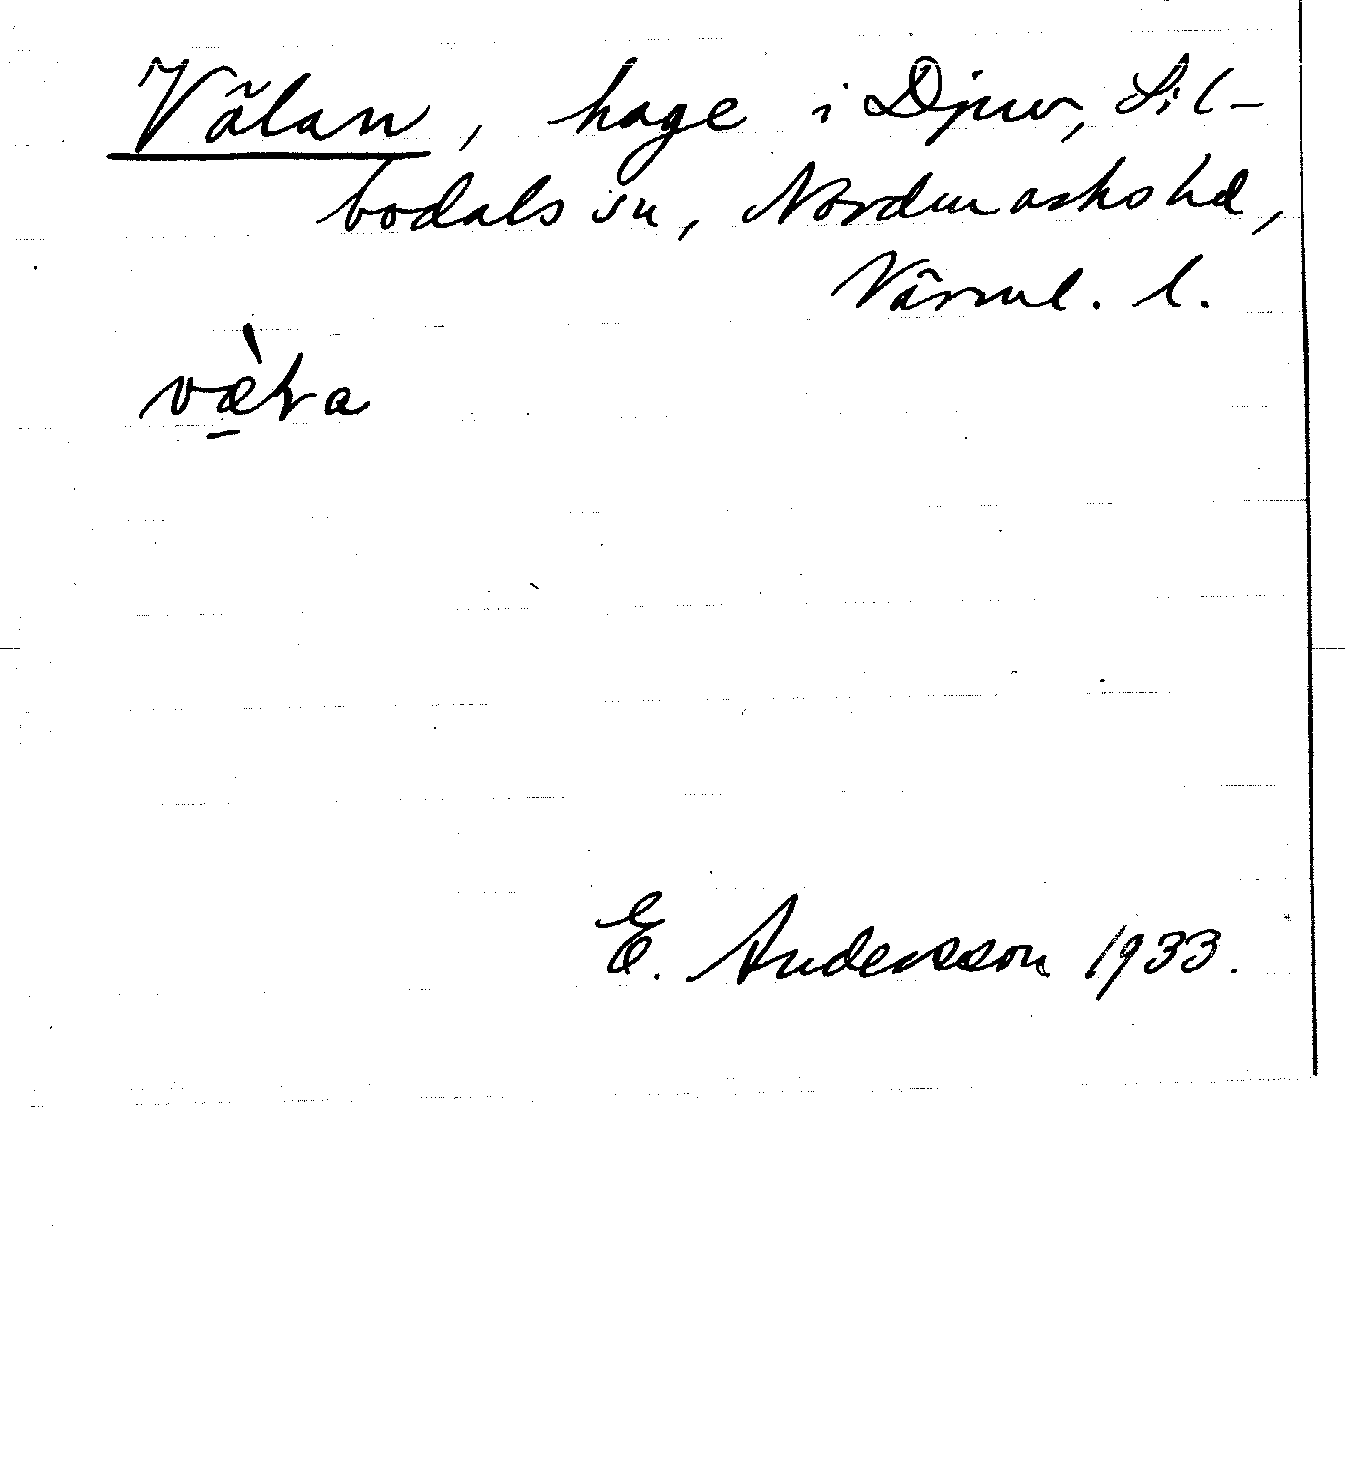 Välan, hage i Djuv, Sil-
bodals sn, Nordmarks hd,
Värml. l.
E. Andersson 1933.